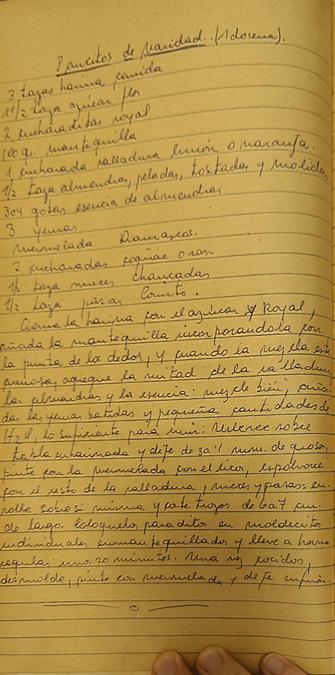 Pancitos de navidad. (1 docena).
3 tazas harina cernida
1 1/2 taza azúcar flor
2 cucharaditas royal
100 gr. mantequilla
1 cucharada ralladura limón o naranja.
1/2 taza almendras, peladas, tostadas y molidas
3 o 4 gotas esencia de almendras
3 yemas
mermelada Damascos.
2 cucharadas cognac o ron
1/2 taza nueces chancadas
1/2 taza pasas Corinto.
Cierna la harina con el azúcar y Royal,
añada la mantequilla incorporándola con
la punta de los dedos, y cuando la mezcla esté
arenosa, agregue la mitad de la ralladura
las almendras y la esencia: mezcle bien, aña
da las yemas batidas y pequeña cantidades de
lo suficiente para unir. Usleree sobre
tabla enharinada y deje de 3 a 4 mm. de grosor,
pinte con la mermelada con el licor, espolvoree
con el resto de la ralladura, nueces y pasas: en
rolle sobre sí misma y corte trozos de 6 a 7 cm.
de largo. Colóquelos paraditos en moldecitos
individuales enmantequillados y lleve a horno
regular unos 20 minutos. Una vez cocidos,
desmolde, pinte con mermelada y deje enfriar.